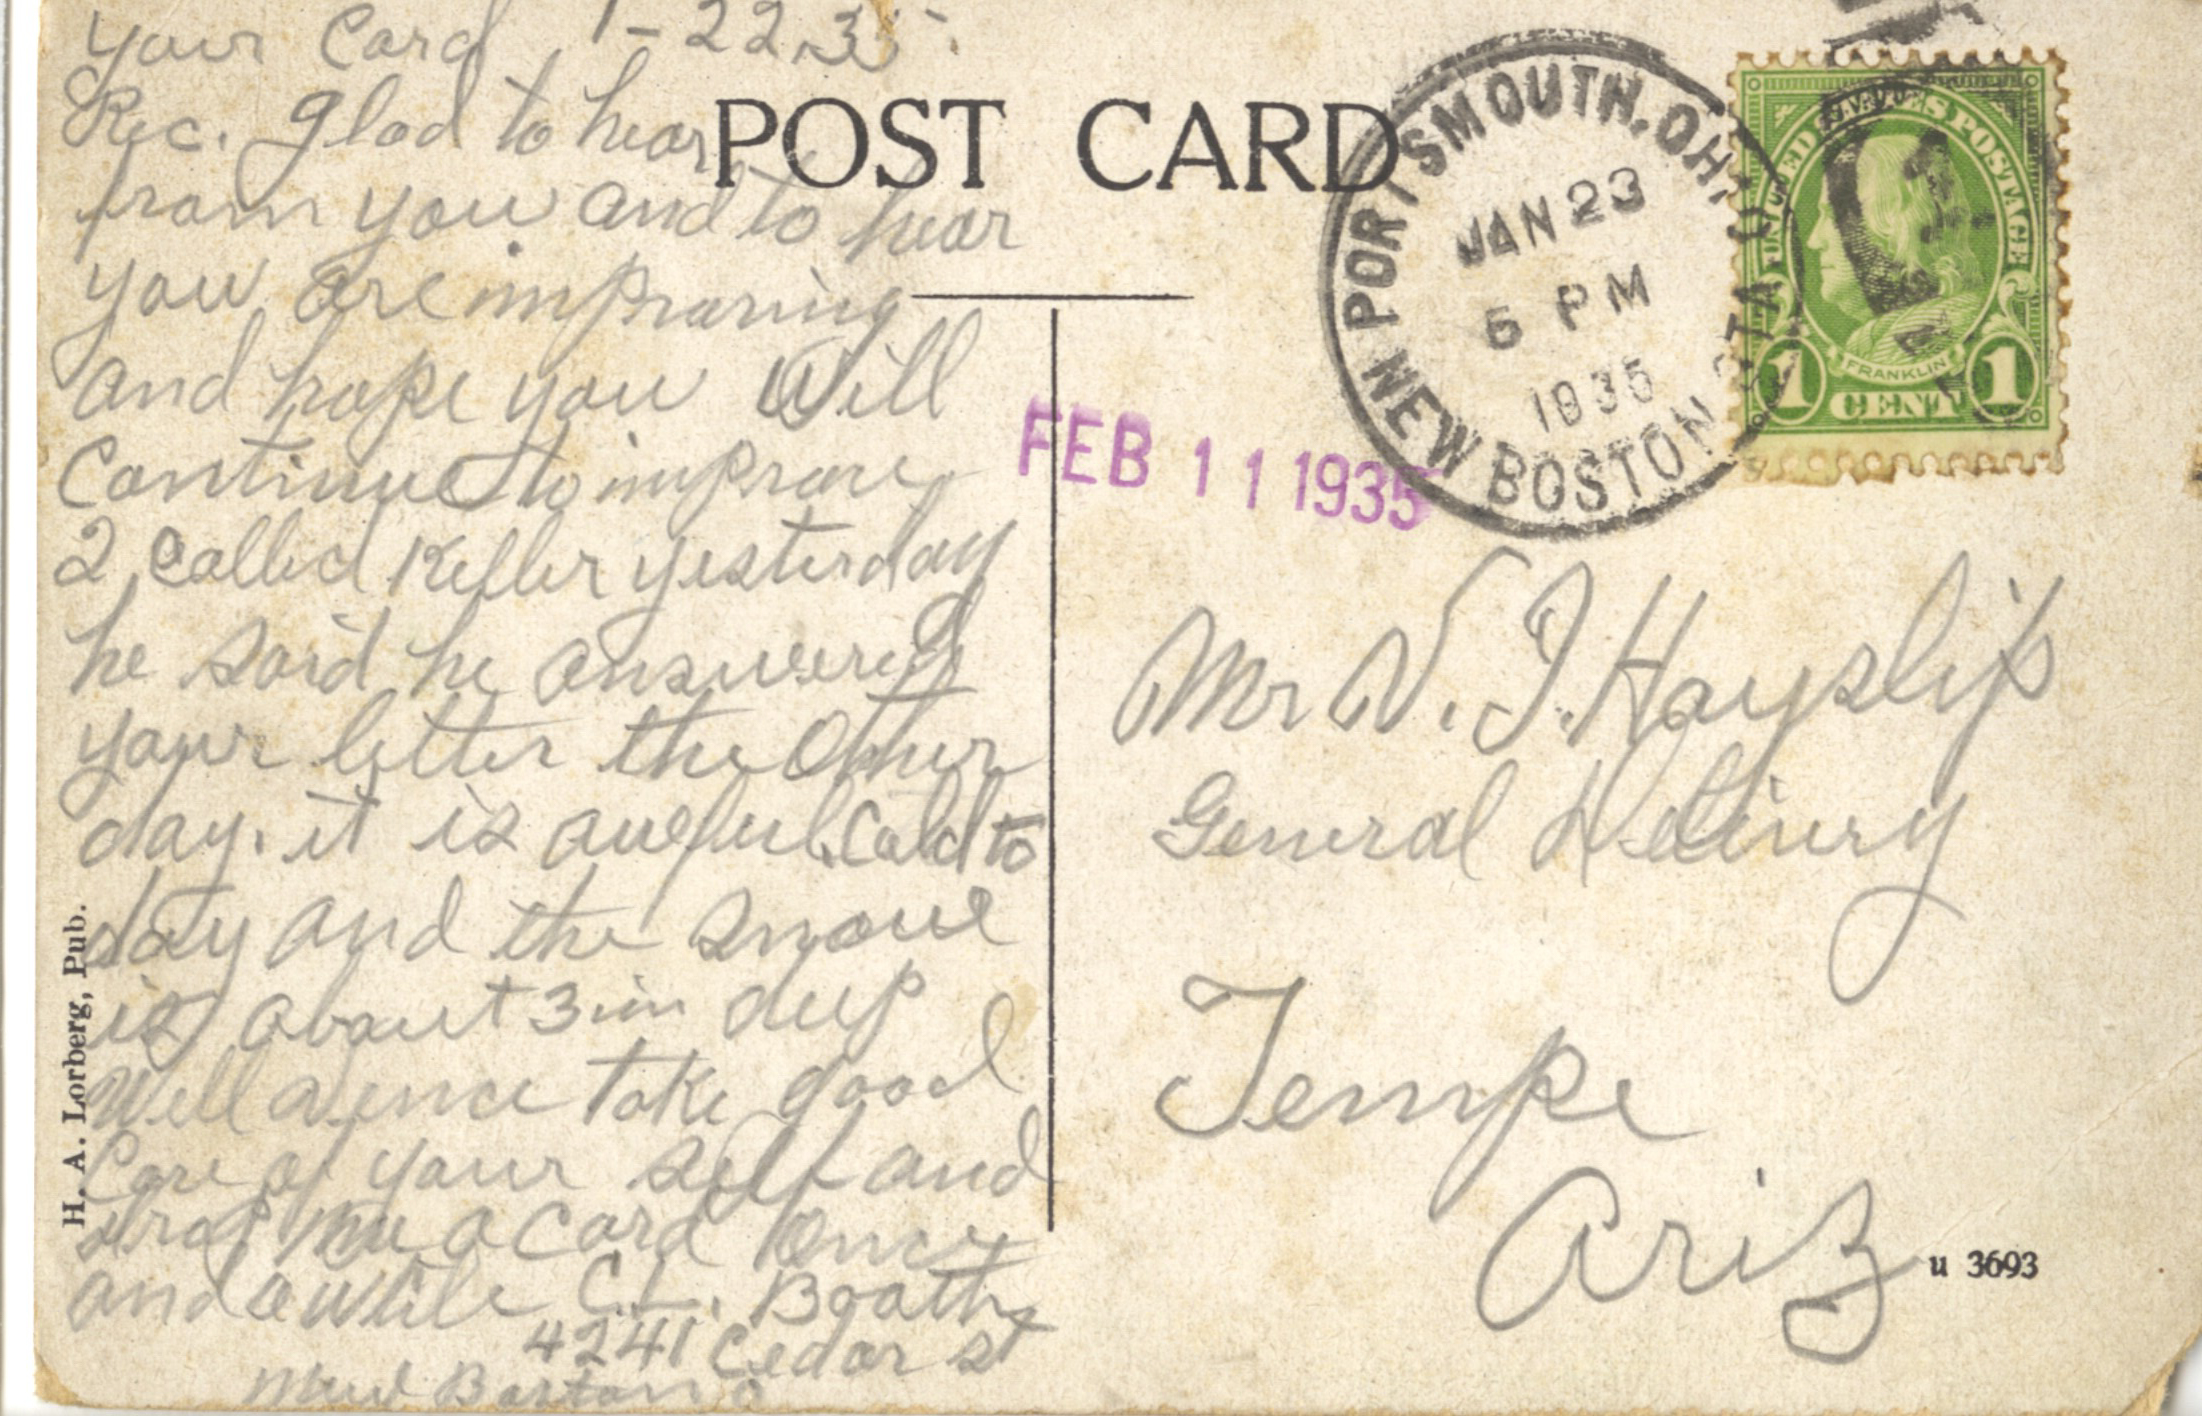 your Card 1-22.35.
Rec. glad to hear
from you and to hear
you are improving
and hope you will
Continue to improve
2 called Keller yesterday
he said he answered
your letter the other
day. it is aweful Cold to
day and the snowe
is about 3 in deep
Well Vence take good
Care of your self and
drop me a Card once
and awhile C.L. Booth
4241 Cedar st
New Boston O
H. A. Lorberg, Pub.
POST CARD
PORTSMOUTH, OH.
JAN 23
5 PM
1935
NEW BOSTON STA.
UNITED STATES POSTAGE
FRANKLIN
1 CENT 1
FEB 11 1935
Mr V. I. Hayslip
General Delivery
Tempe
Ariz
u 3693